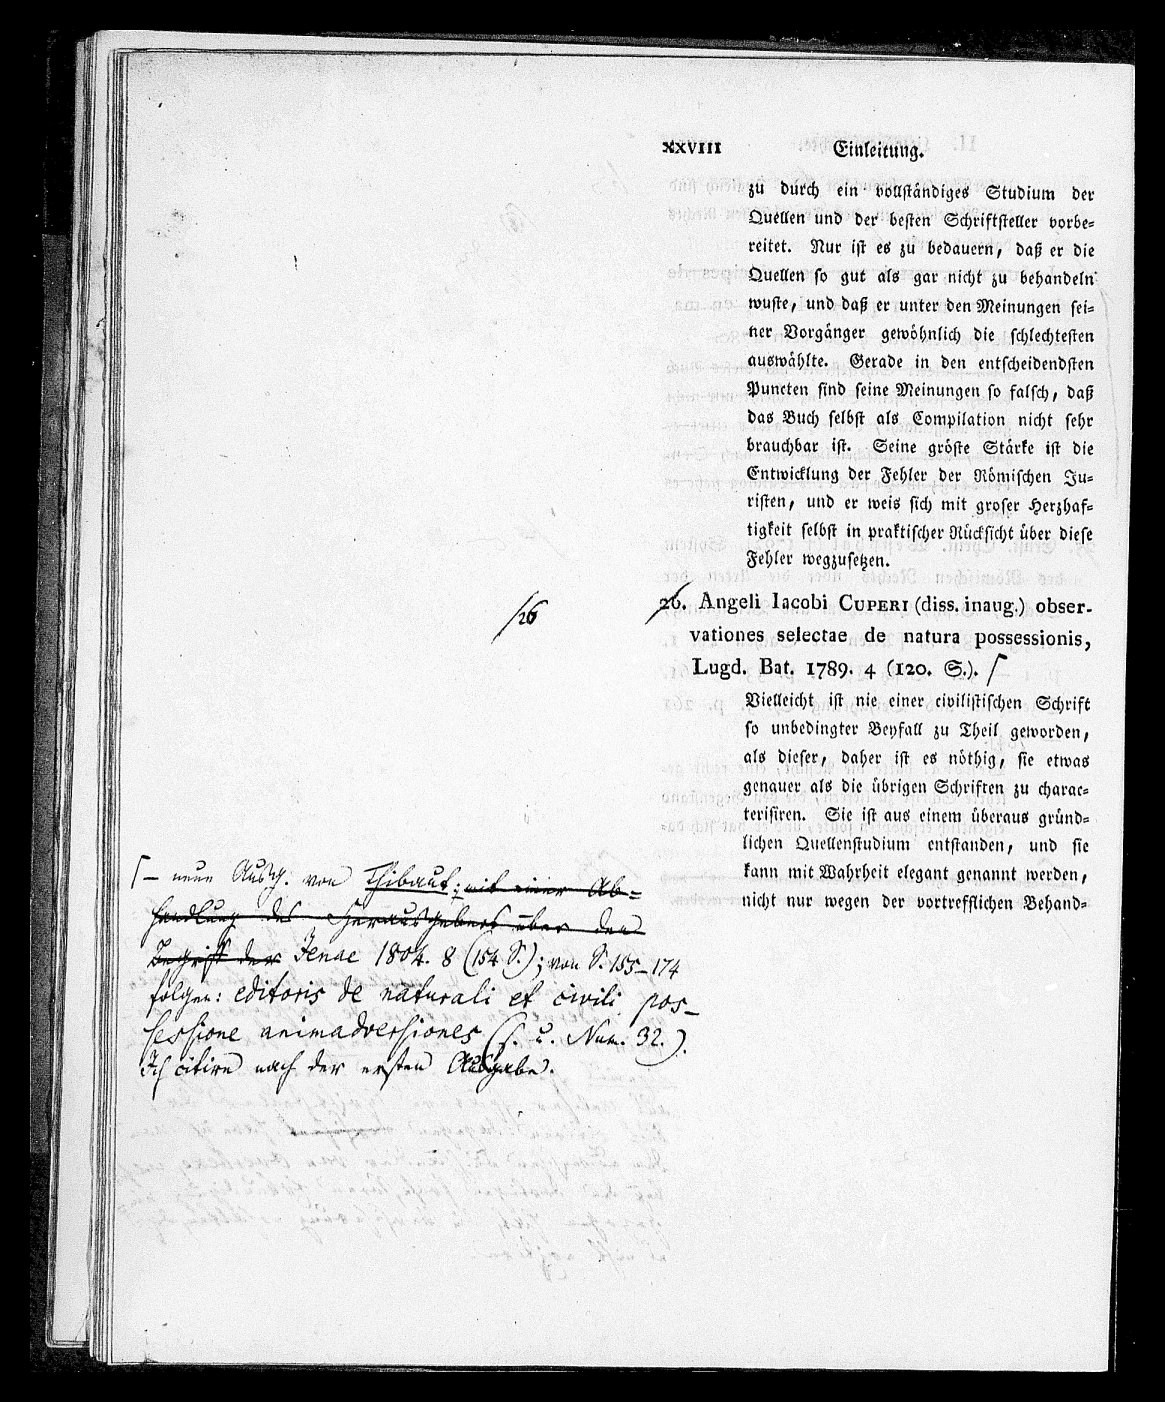 XXVIII Einleitung.
zu durch ein vollständiges Studium der
Quellen und der besten Schriftsteller vorbe=
reitet. Nur ist es zu bedauern, daß er die
Quellen so gut als gar nicht zu behandeln
wuste, und daß er unter den Meinungen sei=
ner Vorgänger gewöhnlich die schlechtesten
auswählte. Gerade in den entscheidendsten
Puncten sind seine Meinungen so falsch, daß
das Buch selbst als Compilation nicht sehr
brauchbar ist. Seine gröste Stärke ist die
Entwicklung der Fehler der Römischen Ju=
risten, und er weis sich mit groser Herzhaf=
tigkeit selbst in praktischer Rücksicht über diese
Fehler wegzusetzen.
26. Angeli Iacobi CUPERI (diss. inaug.) obser-
vationes selectae de natura possessionis,
Lugd. Bat. 1789. 4 (120. S.).
Vielleicht ist nie einer civilistischen Schrift
so unbedingter Beyfall zu Theil geworden,
als dieser, daher ist es nöthig, sie etwas
genauer als die übrigen Schriften zu charac=
terisiren. Sie ist aus einem überaus gründ=
lichen Quellenstudium entstanden, und sie
kann mit Wahrheit elegant genannt werden,
nicht nur wegen der vortrefflichen Behand=
/26
⌈– neue Ausg. von Thibaut; mit einer Ab=
handlung des Herausgebers über den
Begriff der Jenae 1804. 8 (154 S.); von S. 155–174
folgen: editoris de naturali et civili pos–
sessione animadversiones (s. u. Num. 32.).
Ich citire nach der ersten Ausgabe.